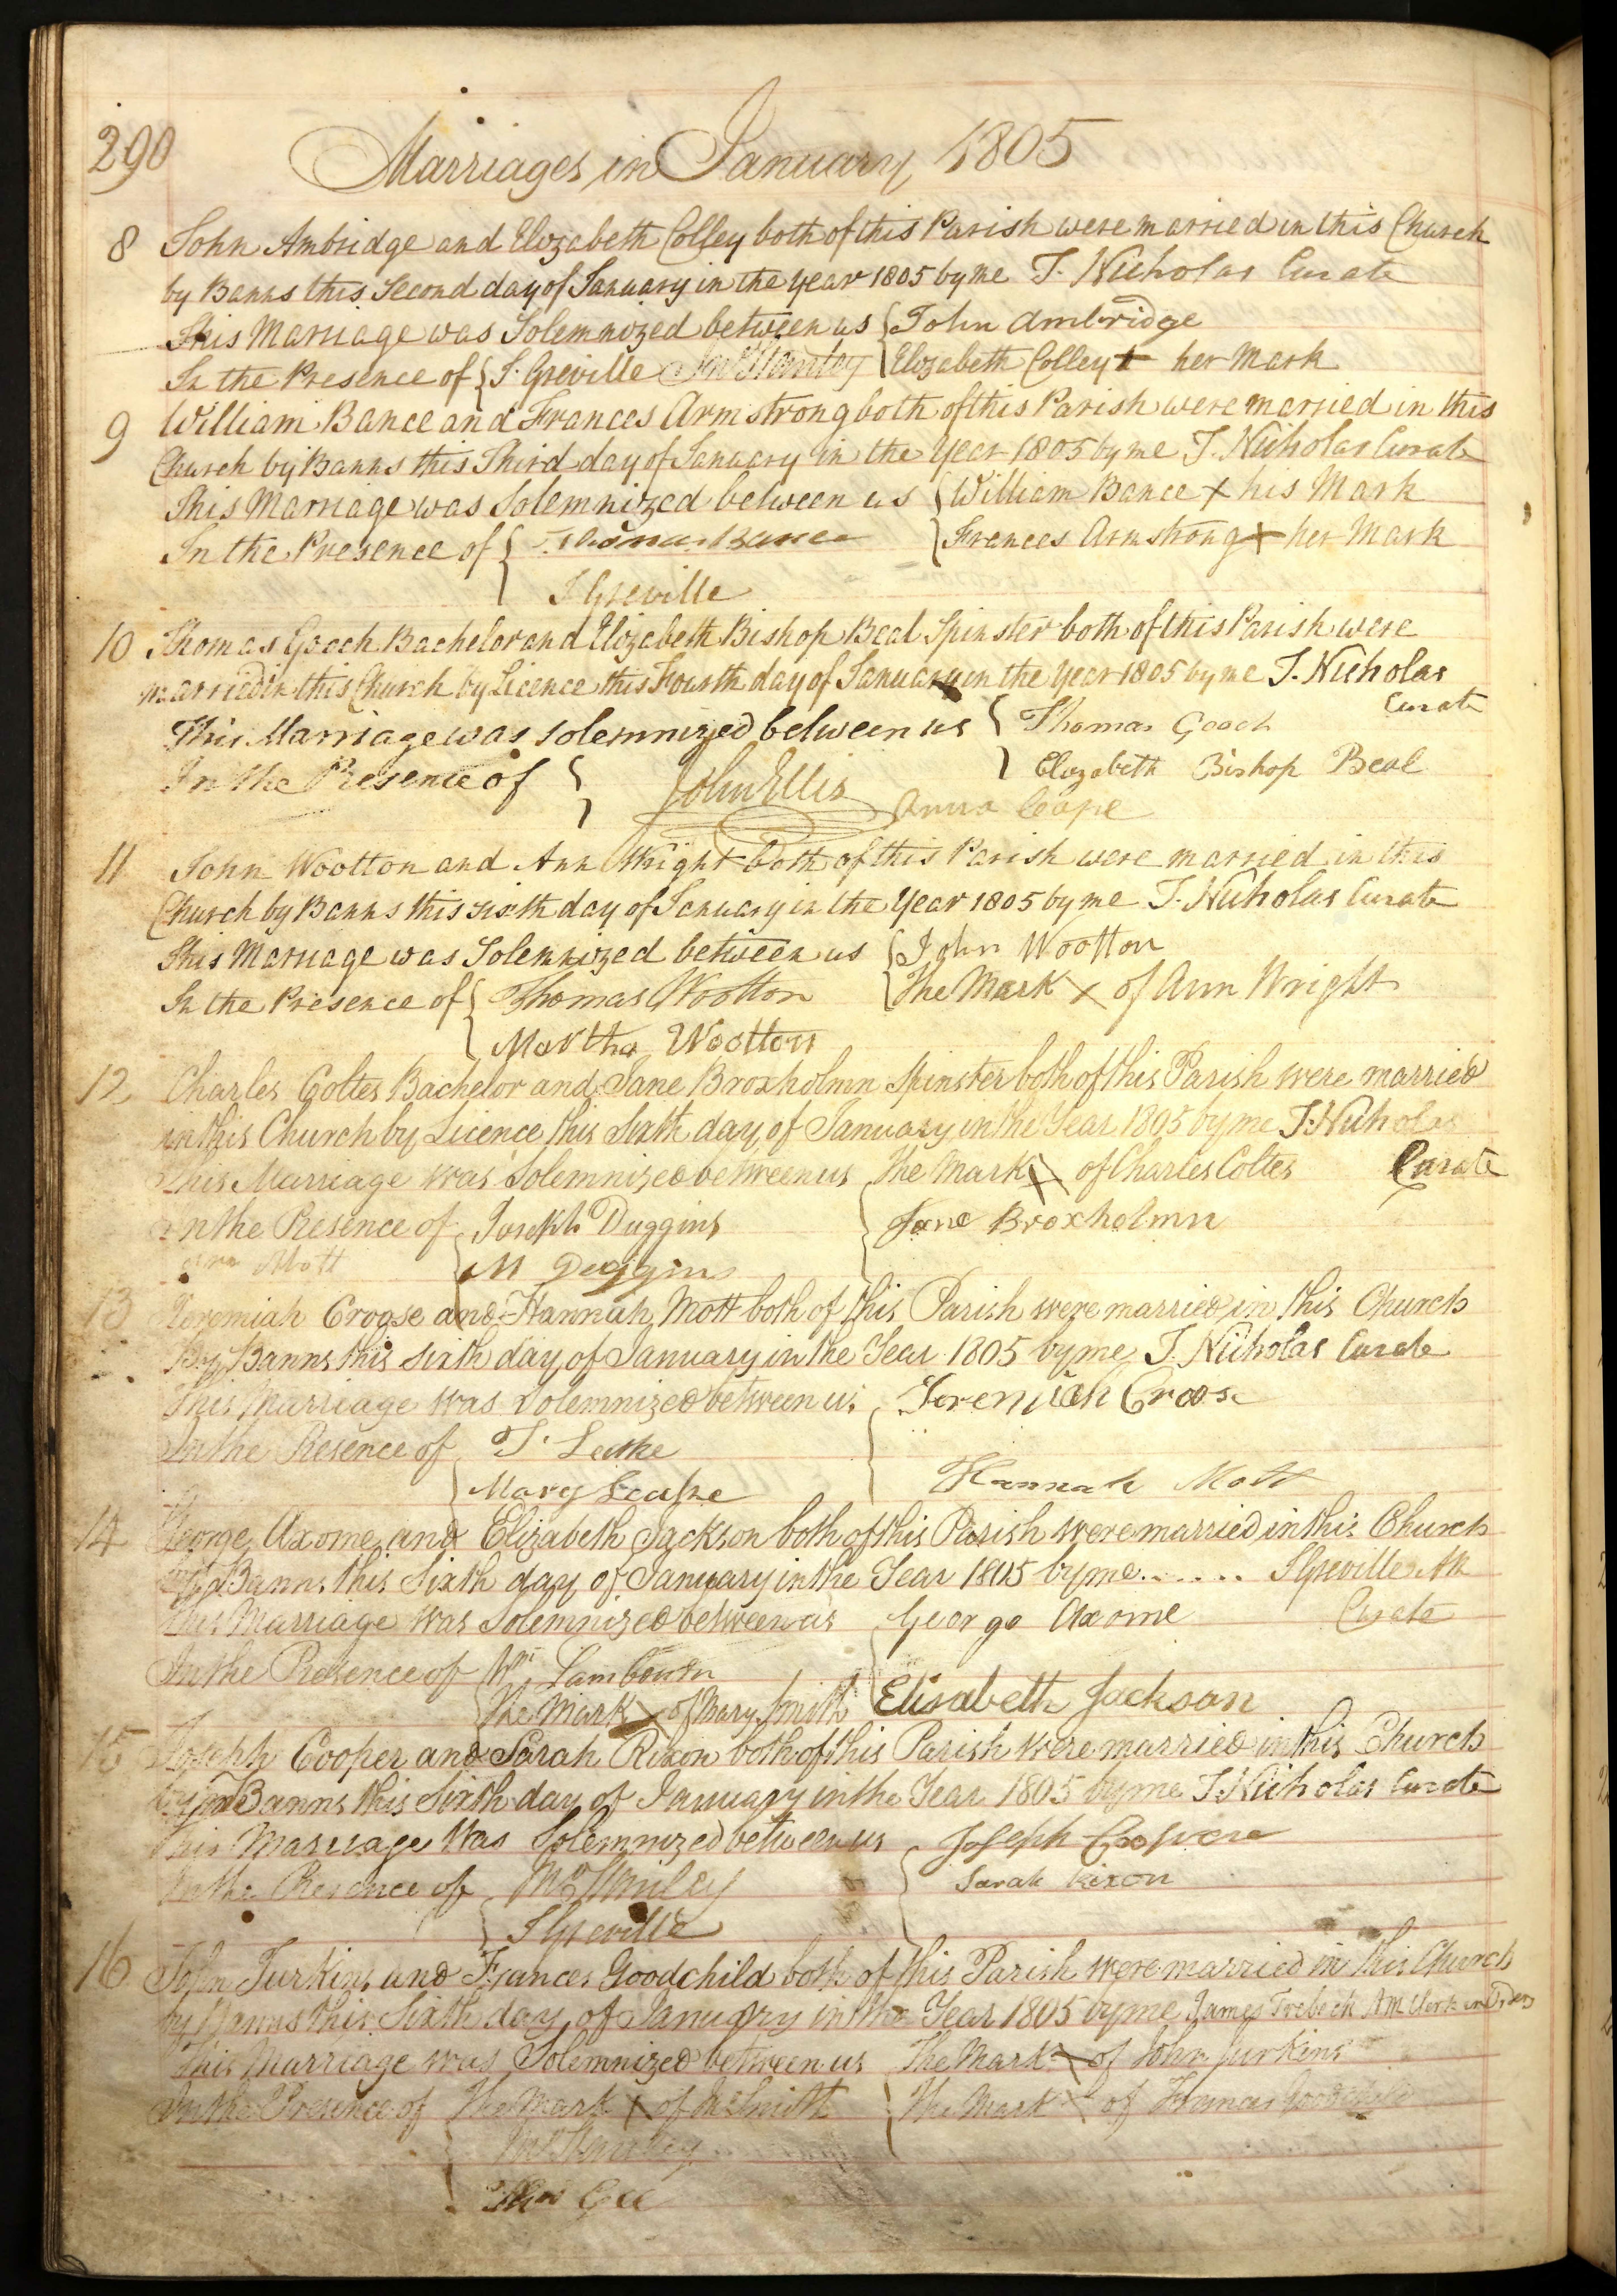 290
Marriages in January 1805
8 John Ambridge and Elizabeth Colley both of this Parish were married in this Church
by Banns this Second day of January in the year 1805 by me T. Nicholas Curate
This Marriage was Solemnized between us John Ambridge
In the Presence of J. Greville Elizabeth Colley + her Mark
9 William Bance and Frances Armstrong both of this Parish were married in this
Church by Banns this Third day of January in the Year 1805 by me T. Nicholas Curate
This Marriage was Solemnized between us William Bance x his Mark
In the Presence of Thomas Bance Frances Armstrong + her Mark
J Greville
10 Thomas Gooch Bachelor and Elizabeth Bishop Beal Spinster both of this Parish were
married in this Church by Licence this Fourth day of January in the Year 1805 by me T. Nicholas
Curate
This Marriage was solemnized between us Thomas Gooch
In the Presence of John Ellis Elizabeth Bishop Beal
Anna Cope
11 John Wootton and Ann Wright both of this Parish were married in this
Church by Banns this sixth day of January in the Year 1805 by me T. Nicholas Curate
This Marriage was Solemnized between us John Wootton
In the Presence of Thomas Wootton The Mark x of Ann Wright
Martha Wootton
12 Charles Coltes Bachelor and Jane Broxholmn Spinster both of this Parish were married
in this Church by Licence this Sixth day of January in the Year 1805 by me T. Nicholas
This Marriage was Solemnized between us The Mark x of Charles Coltes Curate
In the Presence of Joseph Duggins Jane Broxholmn
Mott M Duggins
13 Jeremiah Croose and Hannah Mott both of this Parish were married in this Church
By Banns this sixth day of January in the Year 1805 by me T. Nicholas Curate
This Marriage was Solemnized between us Jeremiah Croose
In the Presence of T. Leake
Mary Leake Hannah Mott
14 George Axome and Elizabeth Jackson both of this Parish were married in this Church
by Banns this Sixth day of January in the Year 1805 by me...... J Greville
This Marriage was Solemnized between us George Axome Curate
In the Presence of Wm Lambourn
The Mark x of Mary Smith Elisabeth Jackson
15 Joseph Cooper and Sarah Rixon both of this Parish were married in this Church
by Banns this Sixth day of January in the Year 1805 by me T. Nicholas Curate
This Marriage was Solemnized between us Joseph
In the Presence of Sarah Rixon
J Greville
16 John Jurkins and Frances Goodchild both of this Parish were married in this Church
by Banns this Sixth day of January in the Year 1805 by me James Trebeck AM Clerk in Orders
This Marriage was Solemnized between us The Mark x of John Jurkins
In the Presence of The Mark x of Smith The Mark x of Frances Goodchild
Thos Gee